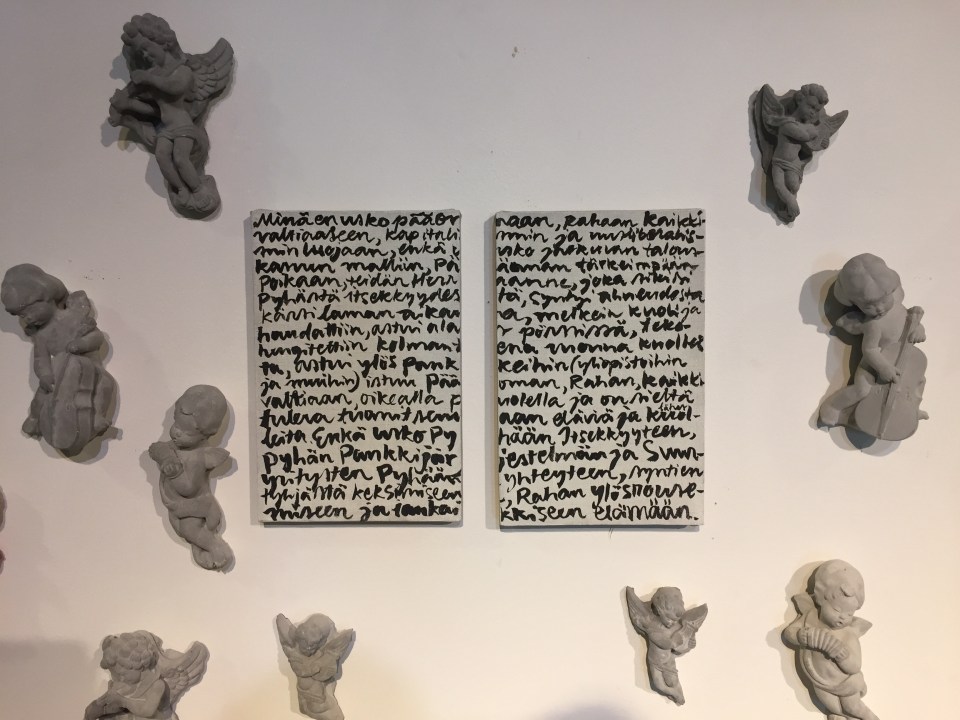 Minä en usko pääor
valtiaaseen, kapitali
min luojaan, enkä
kamun malliin, Pä
Poikaan, teidän Herr
Pyhästä itsekkyydes
kärsi laman aikan
haudattiin, astui ala
tungitettiin kolman
ta, astui ylös Pank
ja muihin) istuu Pää
valtiaan, oikealla p
tuleva tuomitsem
leita Enkä usko Py
pyhän Pankkijär
yritysten Pyhään
tyhjästä keksimiseen
miseen ja lankai
naan, Rahaan kaikki-
smin ja uusliberalis-
usko jatkuvan talous-
äoman tärkeimpään
aanne, joka siksi
tä, syntyi ahneudesta
a, melkein kuoli ja
pörssissä, teko-
ena vuonna kuolles
keihin (yliopistoihin
oman, Rahan, kaikki
uolella ja on sieltä
aan eläviä ja lähes kuol-
hään Itsekkyyteen,
jestelmän ja Suur-
yhteyteen, syntien
, Rahan ylösnouse-
kkiseen elämään.